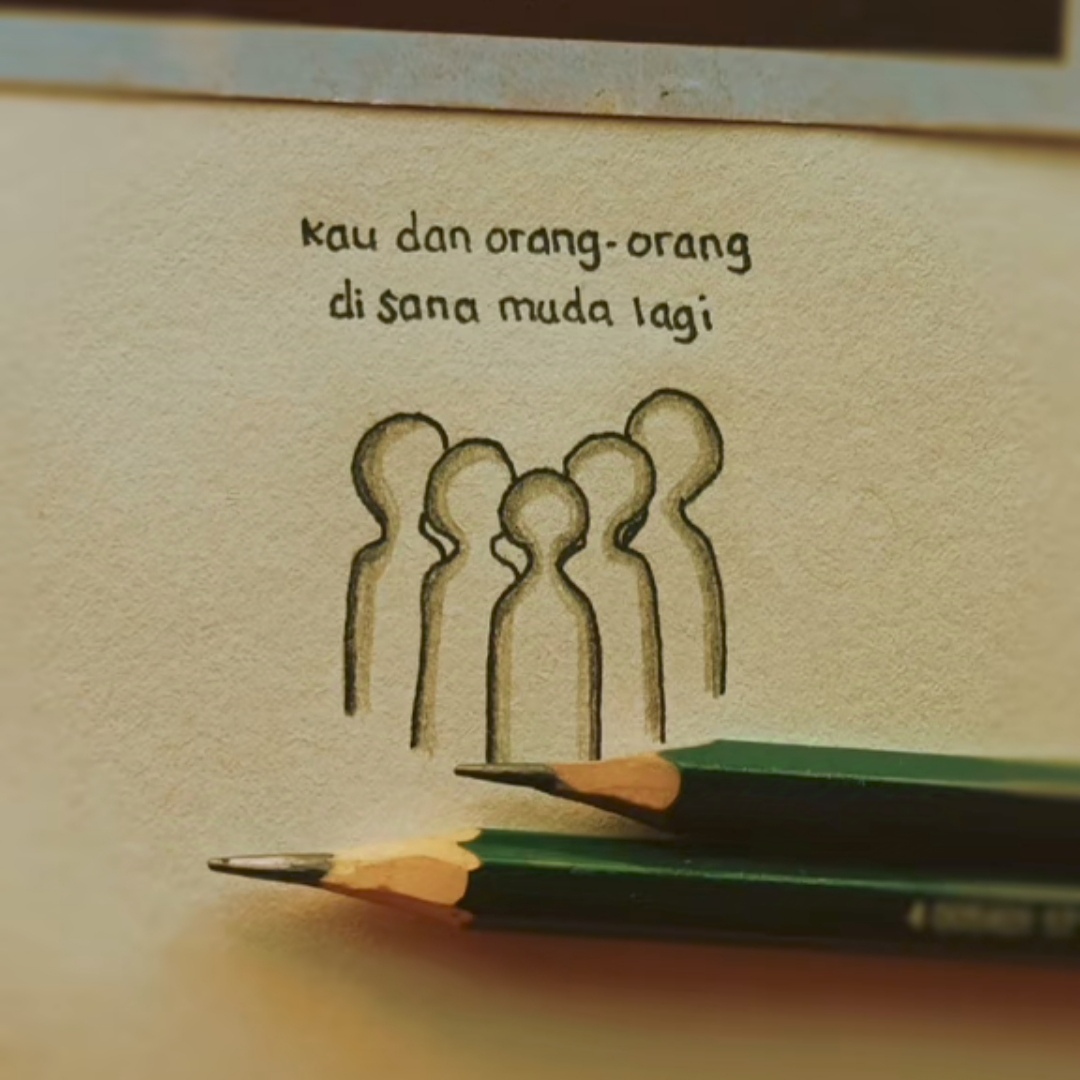 kau dan orang-orang
di sana muda lagi